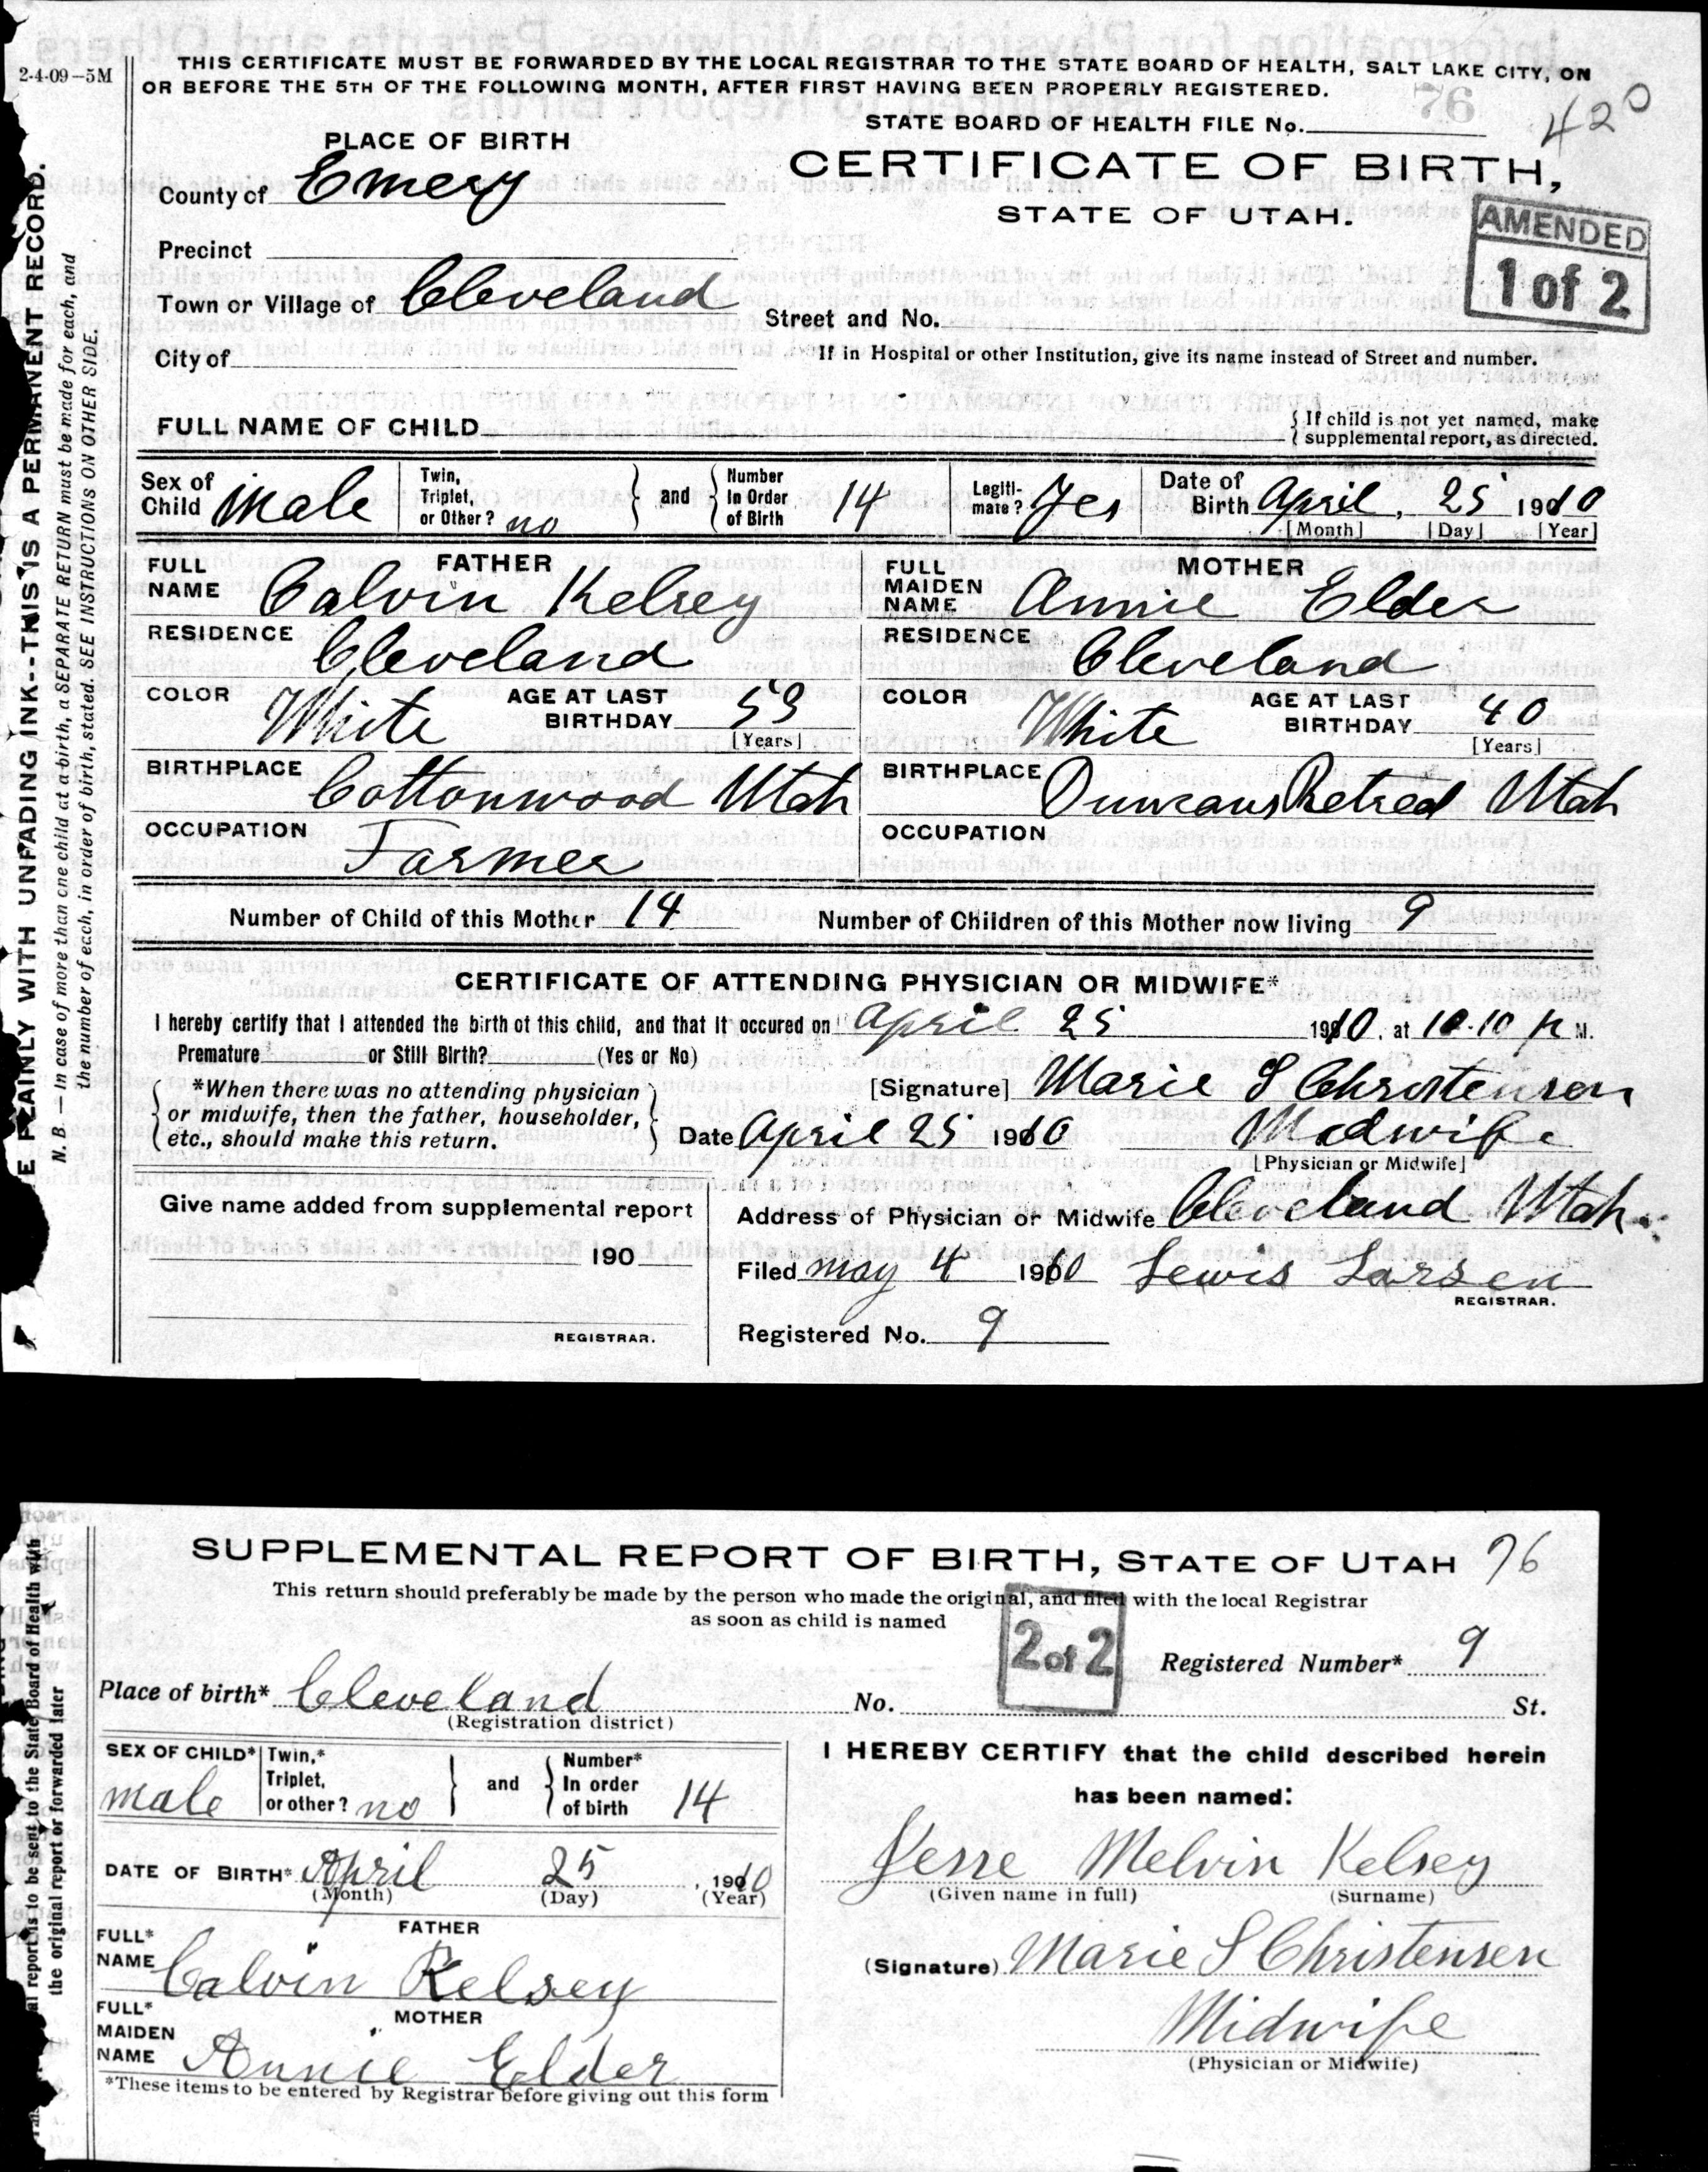 2-4-09-5M
THIS CERTIFICATE MUST BE FORWARDED BY THE LOCAL REGISTRAR TO THE STATE BOARD OF HEALTH, SALT LAKE CITY, ON
OR BEFORE THE 5TH OF THE FOLLOWING MONTH, AFTER FIRST HAVING BEEN PROPERLY REGISTERED.
76
STATE BOARD OF HEALTH FILE No.
420
PLACE OF BIRTH
CERTIFICATE OF BIRTH,
STATE OF UTAH.
County of Emery
AMENDED
1 of 2
Precinct
Town or Village of Cleveland
Street and No.
City of
If in Hospital or other Institution, give its name instead of Street and number.
FULL NAME OF CHILD
If child is not yet named, make
supplemental report, as directed.
Sex of Child male Twin, Triplet, or Other? no and Number In Order of Birth 14 Legitimate? Yes Date of Birth April, 25 1910
[Month] [Day] [Year]
FATHER MOTHER
FULL NAME Calvin Kelsey FULL MAIDEN NAME Annie Elder
RESIDENCE Cleveland RESIDENCE Cleveland
COLOR White AGE AT LAST BIRTHDAY 53 [Years] COLOR White AGE AT LAST BIRTHDAY 40 [Years]
BIRTHPLACE Cottonwood Utah BIRTHPLACE Duncans Retreat Utah
OCCUPATION Farmer OCCUPATION
Number of Child of this Mother 14 Number of Children of this Mother now living 9
CERTIFICATE OF ATTENDING PHYSICIAN OR MIDWIFE*
I hereby certify that I attended the birth of this child, and that it occured on April 25 1910, at 10-10 p M.
Premature or Still Birth? (Yes or No)
*When there was no attending physician
or midwife, then the father, householder,
etc., should make this return.
[Signature] Marie S Christensen
Date April 25 1910 Midwife
[Physician or Midwife]
Give name added from supplemental report
190
REGISTRAR.
Address of Physician or Midwife Cleveland Utah.
Filed may 4 1910 Lewis Larsen
REGISTRAR.
Registered No. 9
E PLAINLY WITH UNFADING INK--THIS IS A PERMANENT RECORD.
N. B. — In case of more than one child at a birth, a SEPARATE RETURN must be made for each, and
the number of each, in order of birth, stated. SEE INSTRUCTIONS ON OTHER SIDE.
SUPPLEMENTAL REPORT OF BIRTH, STATE OF UTAH 76
This return should preferably be made by the person who made the original, and filed with the local Registrar
as soon as child is named
2 of 2
Registered Number* 9
Place of birth* Cleveland No. St.
(Registration district)
SEX OF CHILD* male Twin,* Triplet, or other? no and Number* In order of birth 14
DATE OF BIRTH* April 25, 1910
(Month) (Day) (Year)
FATHER
FULL* NAME Calvin Kelsey
MOTHER
FULL* MAIDEN NAME Annie Elder
*These items to be entered by Registrar before giving out this form
I HEREBY CERTIFY that the child described herein
has been named:
Jesse Melvin Kelsey
(Given name in full) (Surname)
(Signature) Marie S Christensen
Midwife
(Physician or Midwife)
al report is to be sent to the State Board of Health with
the original report or forwarded later